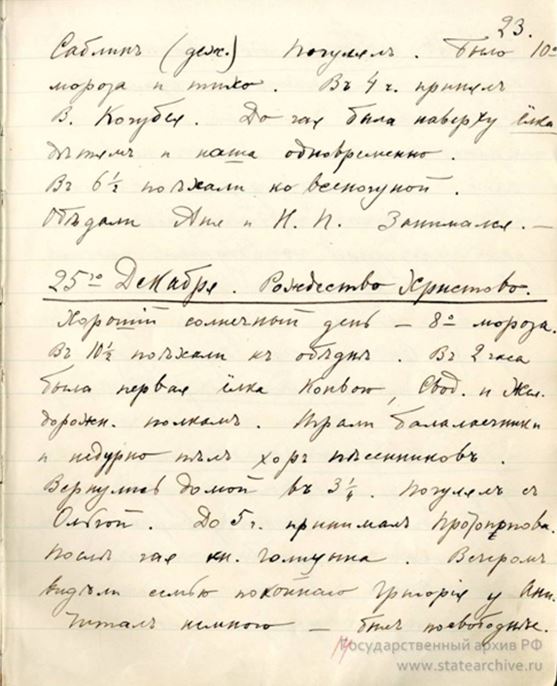 23.
Саблинъ (деж.) Погулялъ. Было 10°
мороза и тихо. Въ 4 ч. принялъ
В. Кочубея. До чая была наверху ёлка
дѣтямъ и наша одновременно.
Въ 6½ поѣхали ко всенощной.
Обѣдали Аня и Н. П. Занимался. —
25го Декабря. Рождество Христово.
Хорошій солнечный день — 8° мороза.
Въ 10½ поѣхали къ обѣднѣ. Въ 2 часа
была первая ёлка Конвою, Свод. и Жел.
дорожн. полкамъ. Играли балалаечники
и недурно пѣлъ хоръ пѣсенниковъ.
Вернулись домой въ 3¼. Погулялъ съ
Ольгой. До 5 ч. принималъ Протопопова.
послѣ чая кн. Голицына. Вечеромъ
видѣли семью покойнаго Григорія у Ани.
Читалъ немного — былъ посвободнѣе.
Государственный архив РФ
www.statearchive.ru